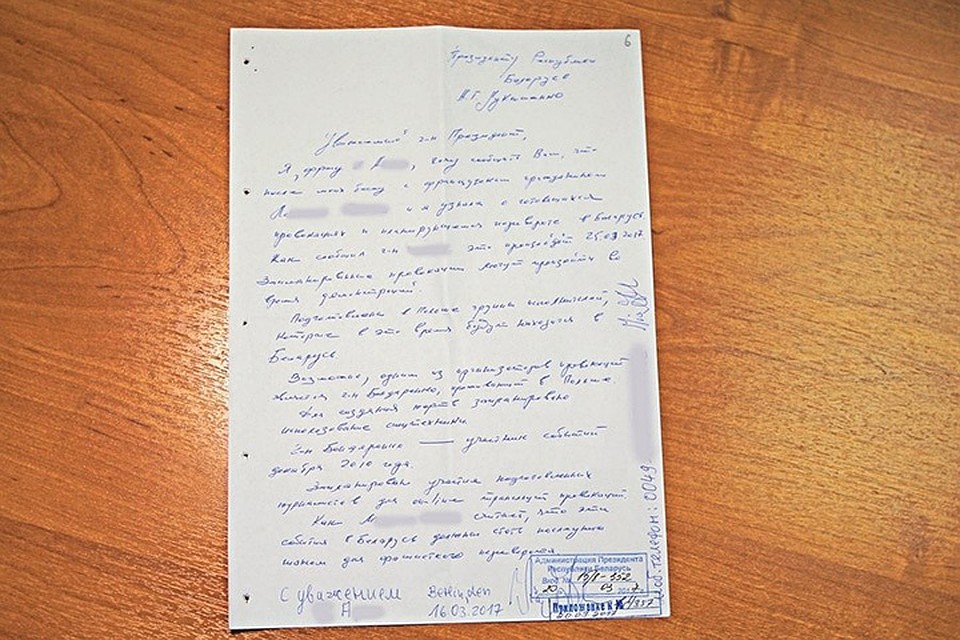 6
Президенту Республики
Беларусь
А.Г. Лукашенко
Уважаемый г-н Президент,
Я, фрау А, хочу сообщить Вам, что
после моих бесед с французским гражданином
и я узнала о готовящихся
провокациях и планирующемся перевороте в Беларусь.
Как сообщил г-н это произойдёт 25.03.2017
Запланированные провокации могут произойти во
время демонстраций.
Подготовлена в Польше группа исполнителей,
которые в это время будут находится в
Беларусь.
Возможно, одним из организаторов провокаций
является г-н Бондаренко, проживающий в Польше.
Для создания жертв запланировано
использование спецтехники
г-н Бондаренко — участник событий
декабря 2010 года.
Запланировано участие подготовленных
журналистов для online трансляций провокаций.
Как считает, что эти
события в Беларусь должны стать последним
шагом для фашистского переворота
С уважением
А
16.03.2017
Моб. телефон: 0049
Администрация Президента
Республики Беларусь
Вход №
20 03 2017
Приложение к №